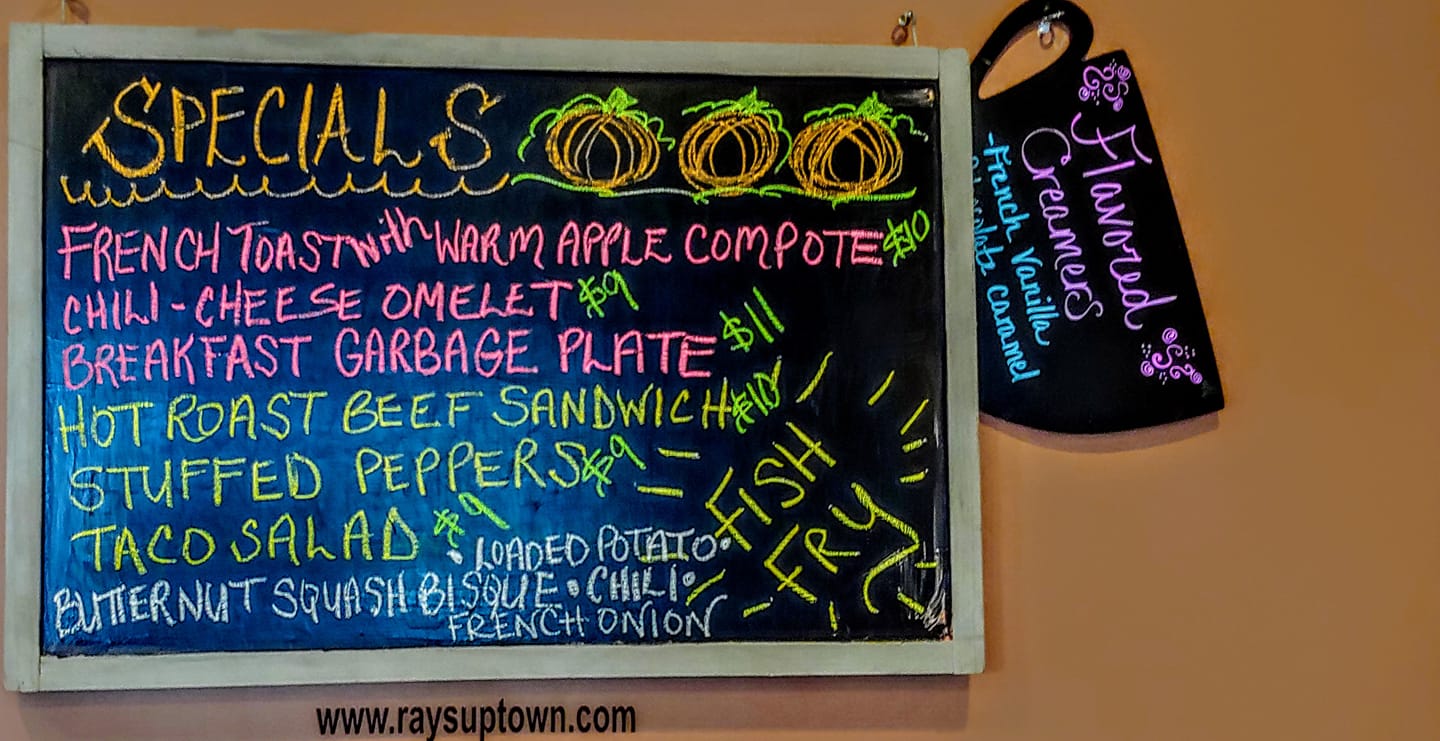 SPECIALS
FRENCH TOAST with WARM APPLE COMPOTE $10
CHILI-CHEESE OMELET $9
BREAKFAST GARBAGE PLATE $11
HOT ROAST BEEF SANDWICH $10
STUFFED PEPPERS $9
TACO SALAD $9
• LOADED POTATO •
BUTTERNUT SQUASH BISQUE • CHILI •
FRENCH ONION
FISH
FRY
Flavored
Creamers
-French Vanilla
caramel
www.raysuptown.com